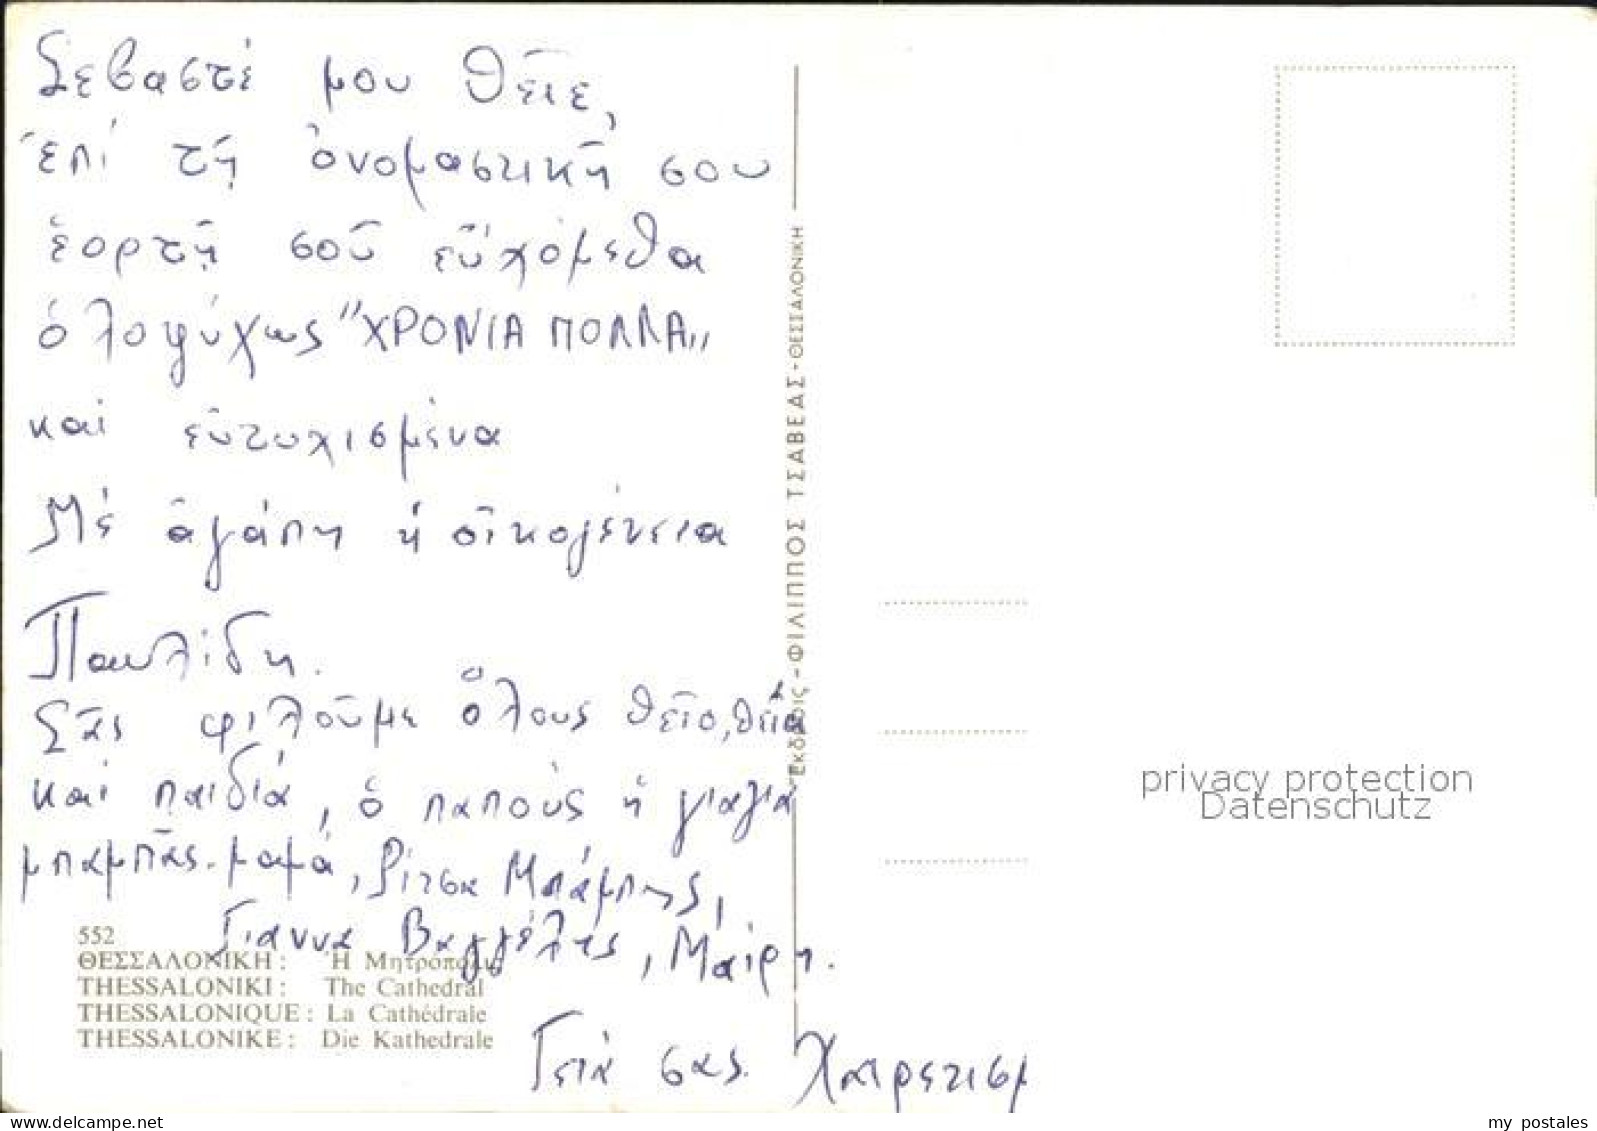 Σεβαστέ μου θεῖε,
ἐπί τῇ ὀνομαστικῇ σου
ἑορτῇ σοῦ εὐχόμεθα
ὁλοψύχως "ΧΡΟΝΙΑ ΠΟΛΛΑ„
καί εὐτυχισμένα
Μέ ἀγάπη ἡ οἰκογένεια
Παυλίδη.
Σᾶς φιλοῦμε ὅλους θεῖο, θεία
καί παιδιά, ὁ παπούς ἡ γιαγιά
μπαμπᾶς. μαμά, Ρίτσα Μπάμπης,
Γιαννα Βαγγέλης, Μαίρη.
Γειά σας. Χαιρετισμ
552
ΘΕΣΣΑΛΟΝΙΚΗ: Ἡ Μητρόπολις
THESSALONIKI: The Cathedral
THESSALONIQUE: La Cathédrale
THESSALONIKE: Die Kathedrale
Ἐκδόσις - ΦΙΛΙΠΠΟΣ ΤΣΑΒΕΑΣ - ΘΕΣΣΑΛΟΝΙΚΗ
privacy protection
Datenschutz
my postales